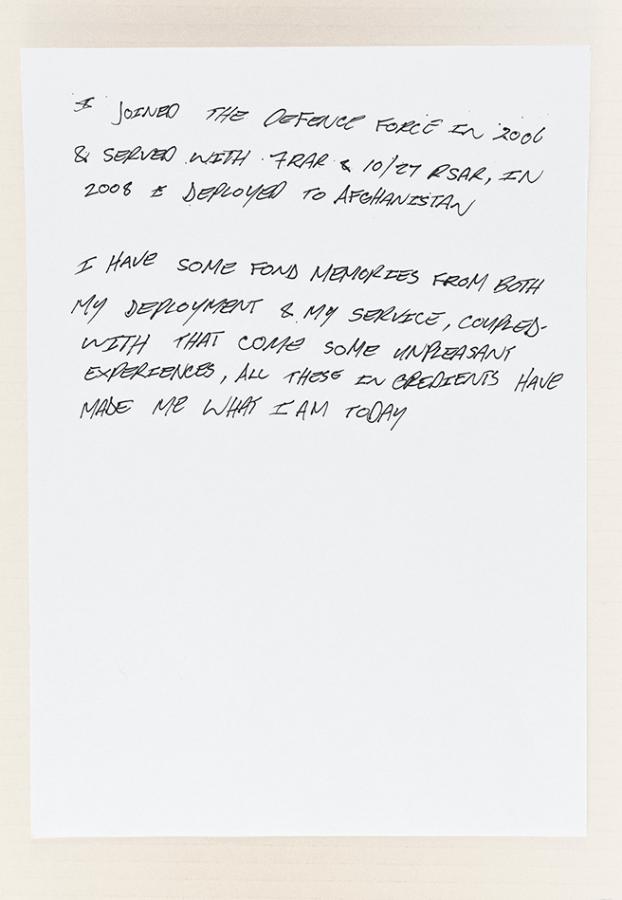 I JOINED THE DEFENCE FORCE IN 2006
& SERVED WITH 7RAR & 10/27 RSAR, IN
2008 I DEPLOYED TO AFGHANISTAN
I HAVE SOME FOND MEMORIES FROM BOTH
MY DEPLOYMENT & MY SERVICE, COUPLED-
WITH THAT COME SOME UNPLEASANT
EXPERIENCES, ALL THESE IN GREDIENTS HAVE
MADE ME WHAT I AM TODAY